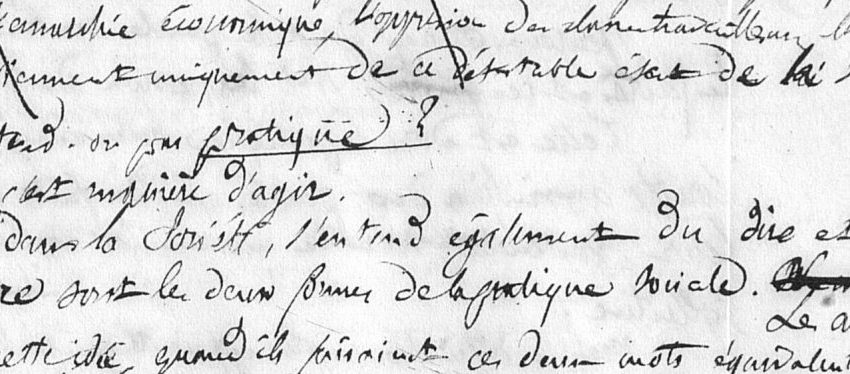 anarchie économique, l'oppression des classes travailleuses
viennent uniquement de ce détestable état de
tend-on par pratique ?
c'est manière d'agir.
dans la Société, s'entend également du dire et
re sont les deux formes de la pratique sociale.
Les
cette idée, quand ils faisaient ces deux mots équivalent